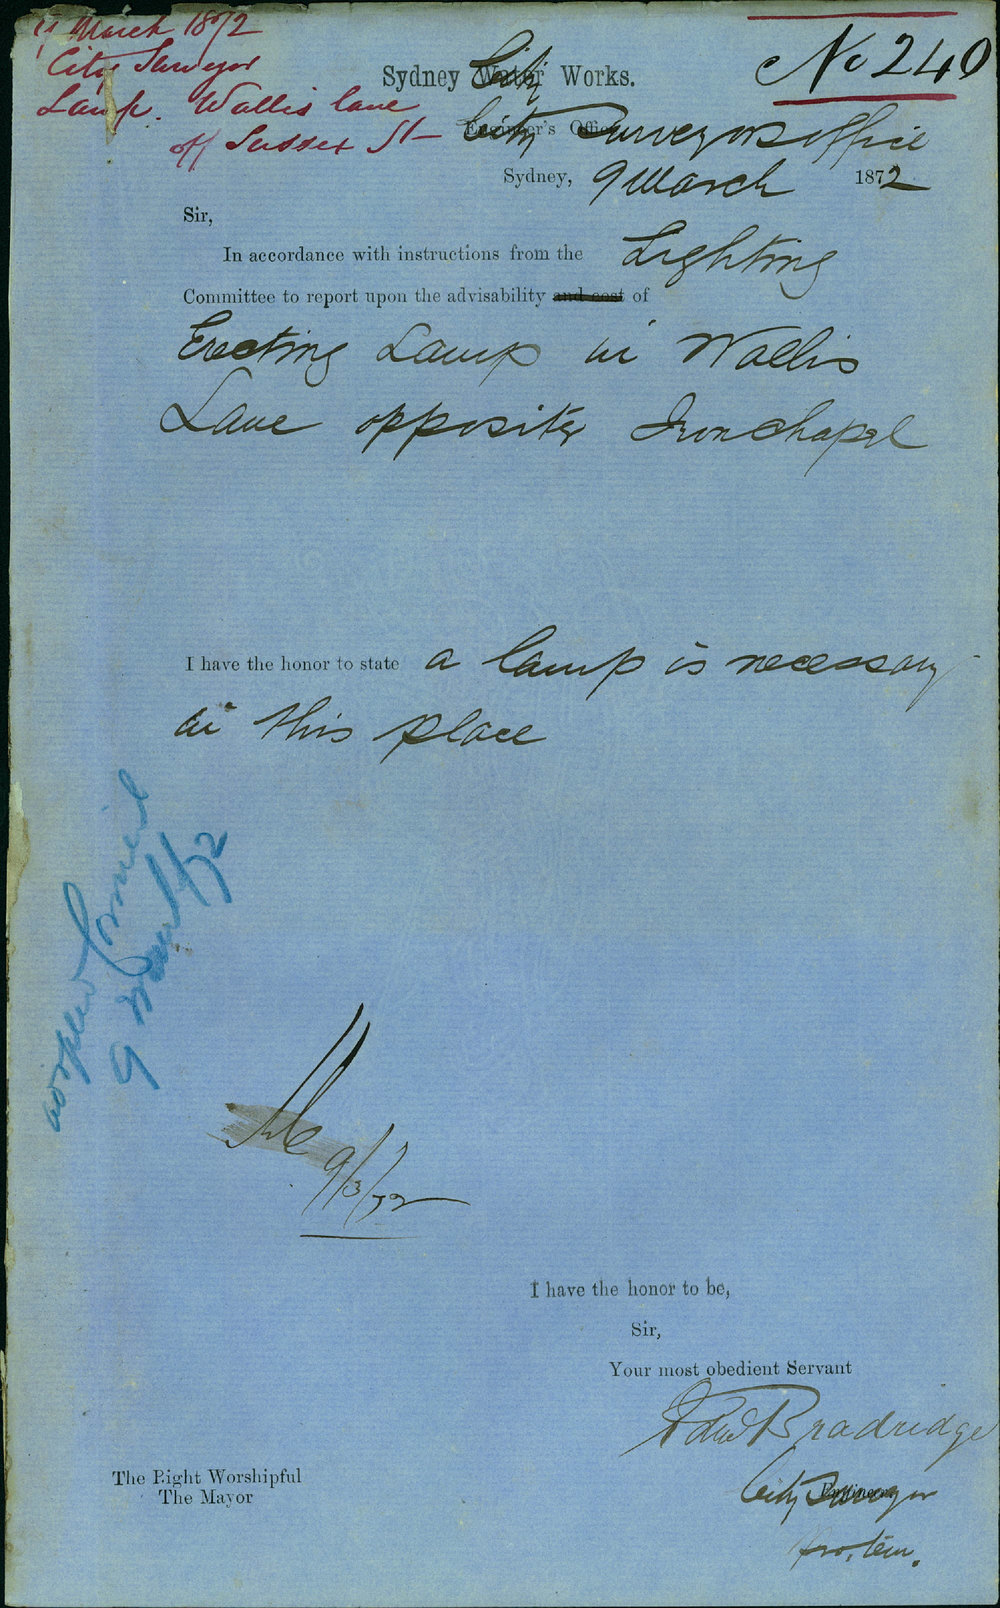 11 March 1872
City Surveyor
Lamp. Wallis lane
off Sussex St
No 240
Sydney Water City Works.
Engineer's Office City Surveyors office
Sydney, 9 March 1872
Sir,
In accordance with instructions from the Lighting
Committee to report upon the advisability and cost of
Erecting Lamp in Wallis
Lane opposite Iron chapel
I have the honor to state a lamp is necessary
in this place
adopted Council
9 March / 72
9/3/72
I have the honor to be,
Sir,
Your most obedient Servant
Edwd Bradridge
City Surveyor Engineer.
pro. tem.
The Right Worshipful
The Mayor